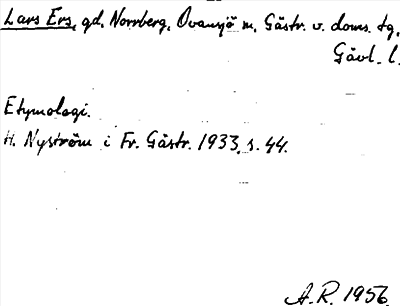 Lars Ers, gd, Norrberg, Ovansjö sn, Gästr. v. doms. tg,
Gävl. l.
Etymologi.
H. Nyström i Fr. Gästr. 1933, s. 44.
A.R. 1956.